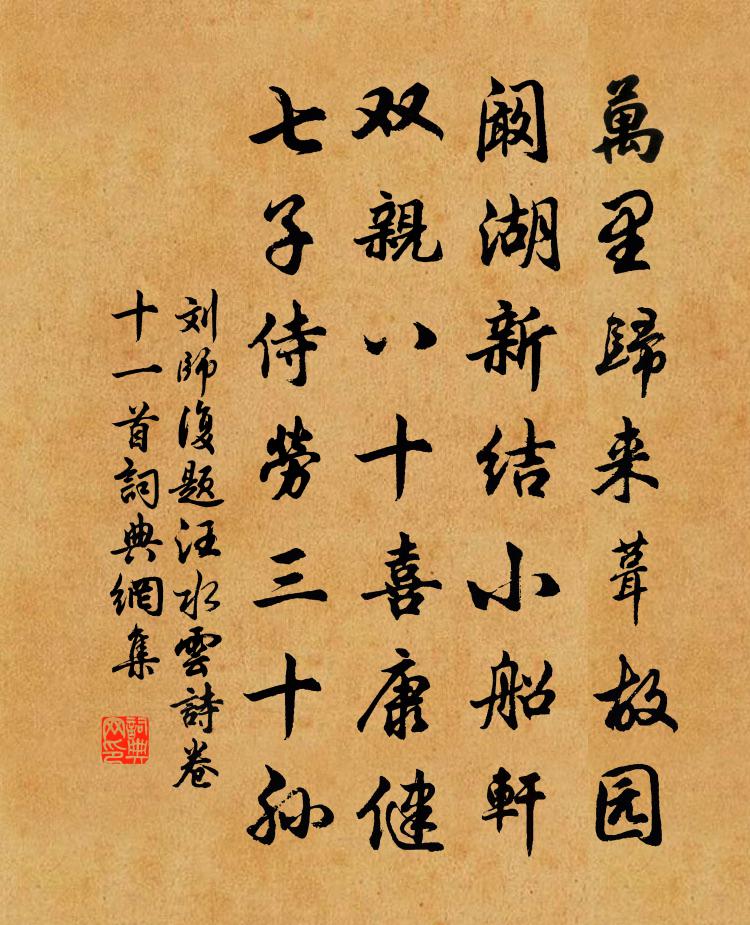 萬里歸来葺故园
阚湖新结小船軒
双親八十喜康健
七子侍劳三十孙
刘師復题汪水雲詩卷
十一首詞典網集
詞典网印